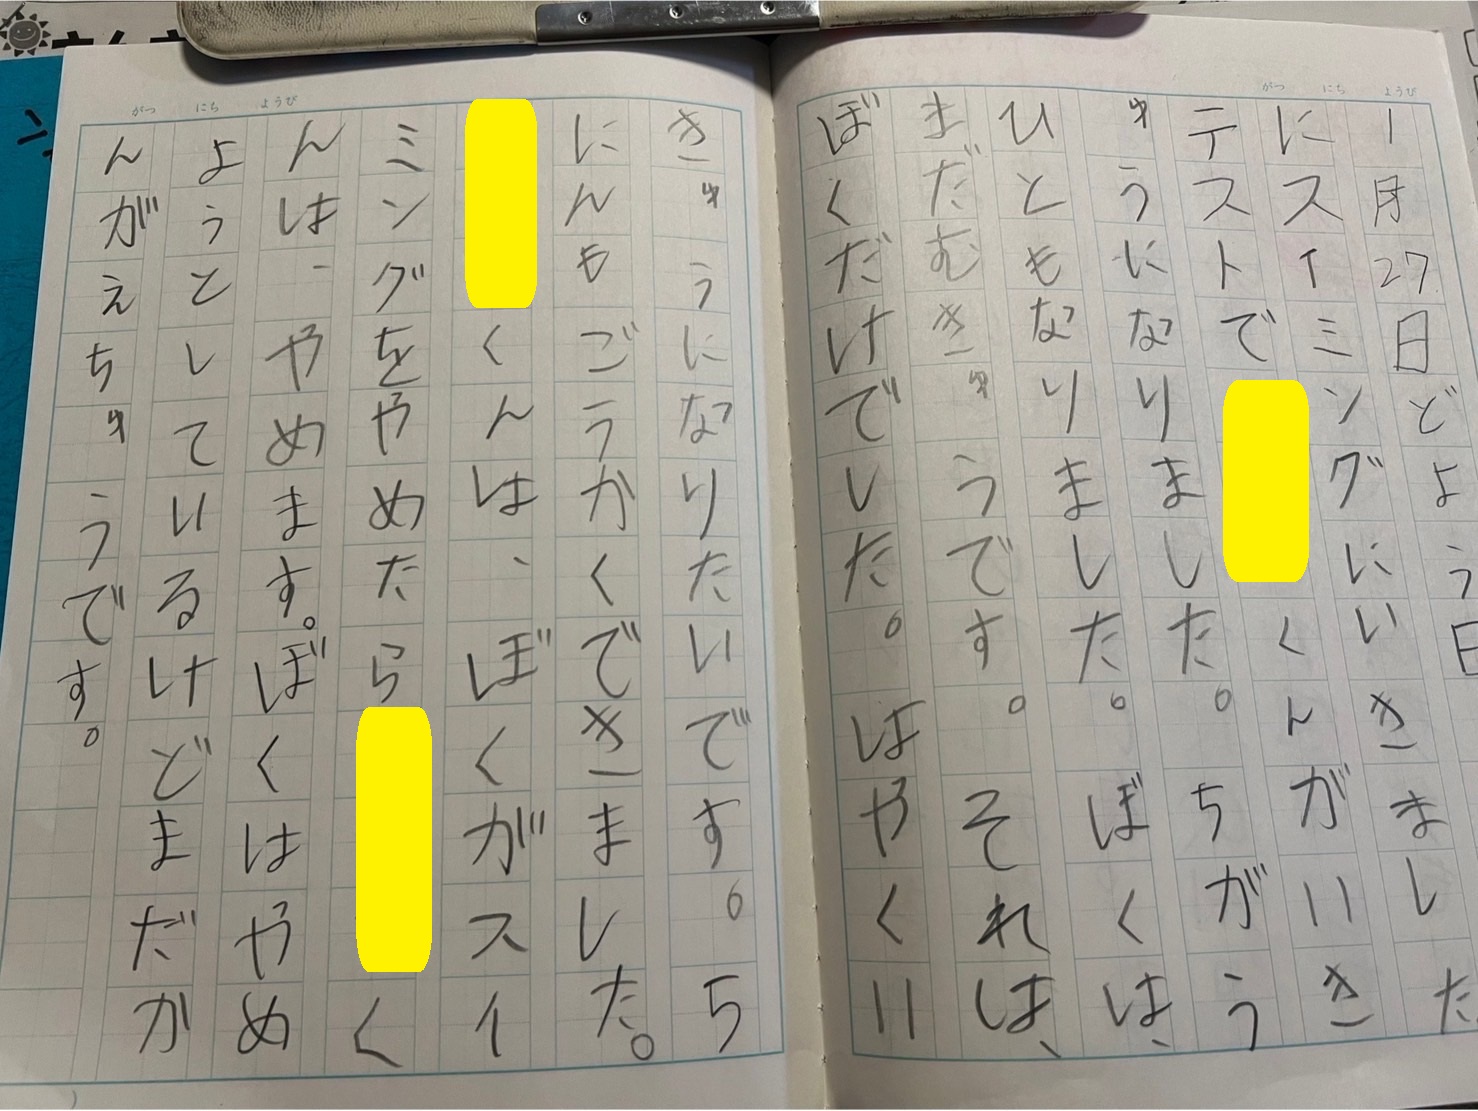 がつ にち ようび
1月27日どよう日
にスイミングにいきました
テストでくんが11き
ゅうになりました。ちがう
ひともなりました。ぼくは、
まだむきゅうです。それは、
ぼくだけでした。はやく11
がつ にち ようび
きゅうになりたいです。5
にんもごうかくできました。
くんは、ぼくがスイ
ミングをやめたらく
んは、やめます。ぼくはやめ
ようとしているけどまだか
んがえちゅうです。